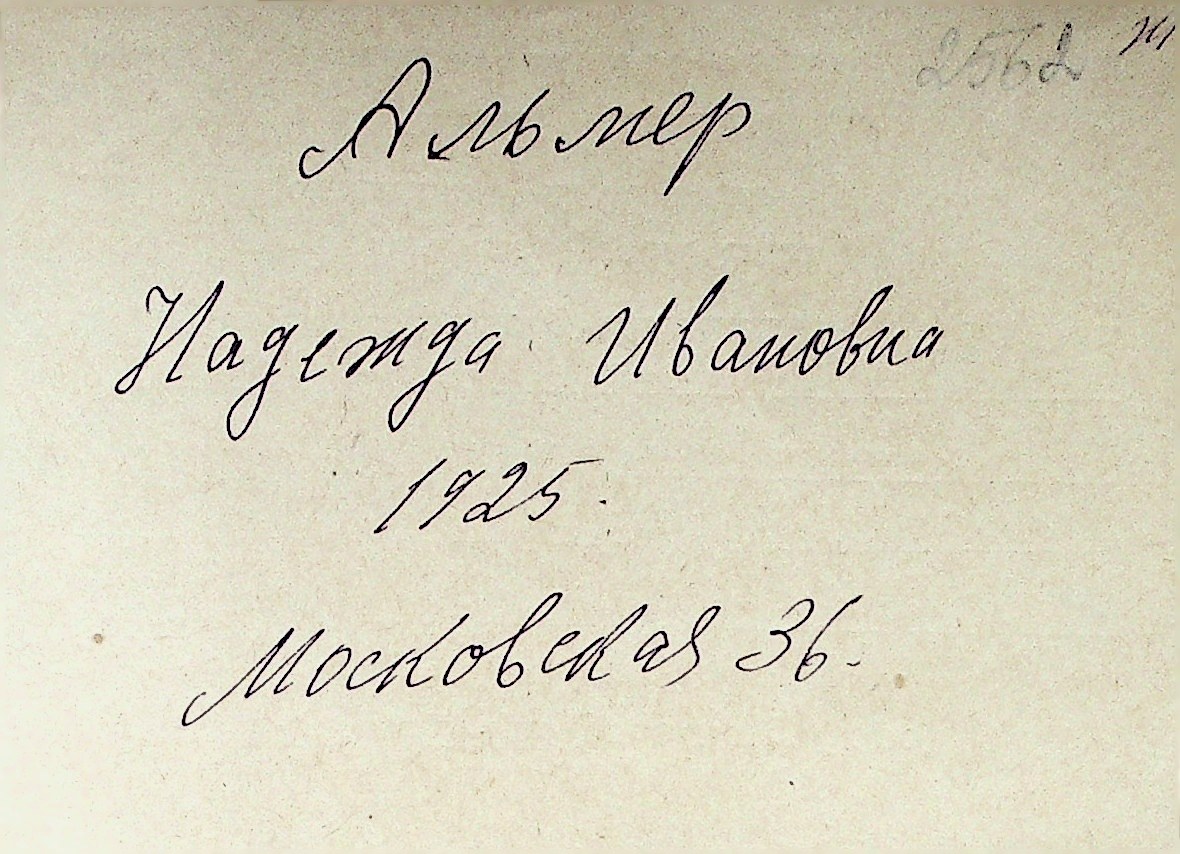 2562
Альмер
Надежда Ивановна
1925.
Московская 36.